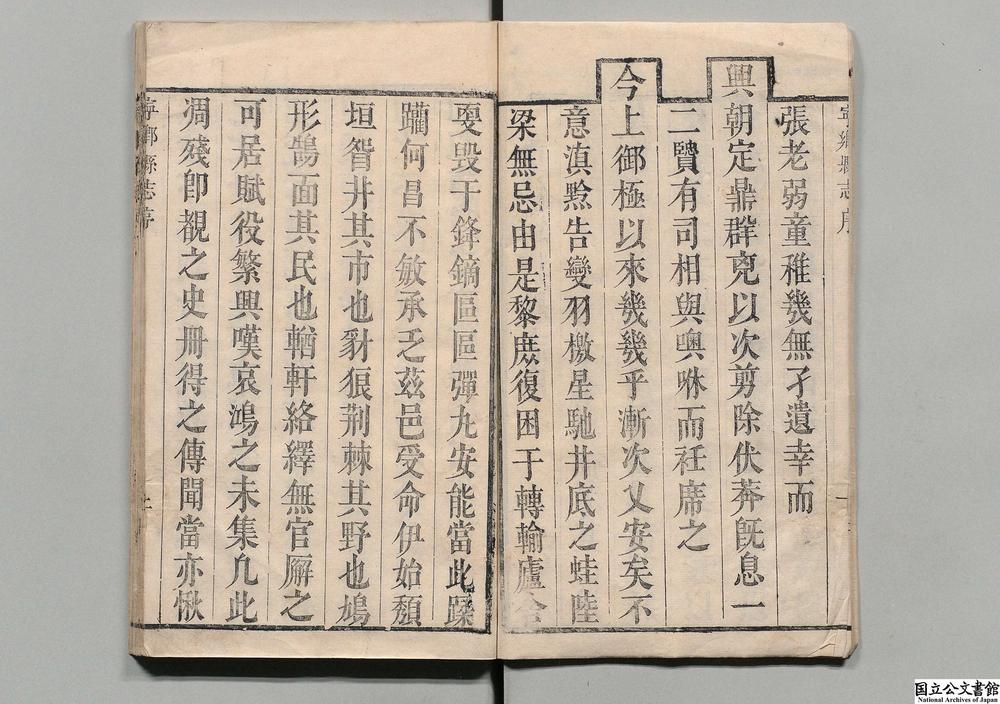 寧鄉縣志序
張老弱童稚幾無孑遺幸而
興朝定鼎群兇以次剪除伏莽既息一
二賢有司相與噢咻而衽席之
今上御極以來幾幾乎漸次乂安矣不
意滇黔告變羽檄星馳井底之蛙陸
梁無忌由是黎庶復困于轉輸廬舍
更毀于鋒鏑區區彈丸安能當此蹂
躪何昌不敏承乏茲邑受命伊始頹
垣眢井其市也豺狼荆棘其野也鳩
形鵠面其民也輶軒絡繹無官廨之
可居賦役繁興嘆哀鴻之未集凡此
凋殘卽覩之史冊得之傳聞當亦愀
寧鄉縣志序
国立公文書館
National Archives of Japan